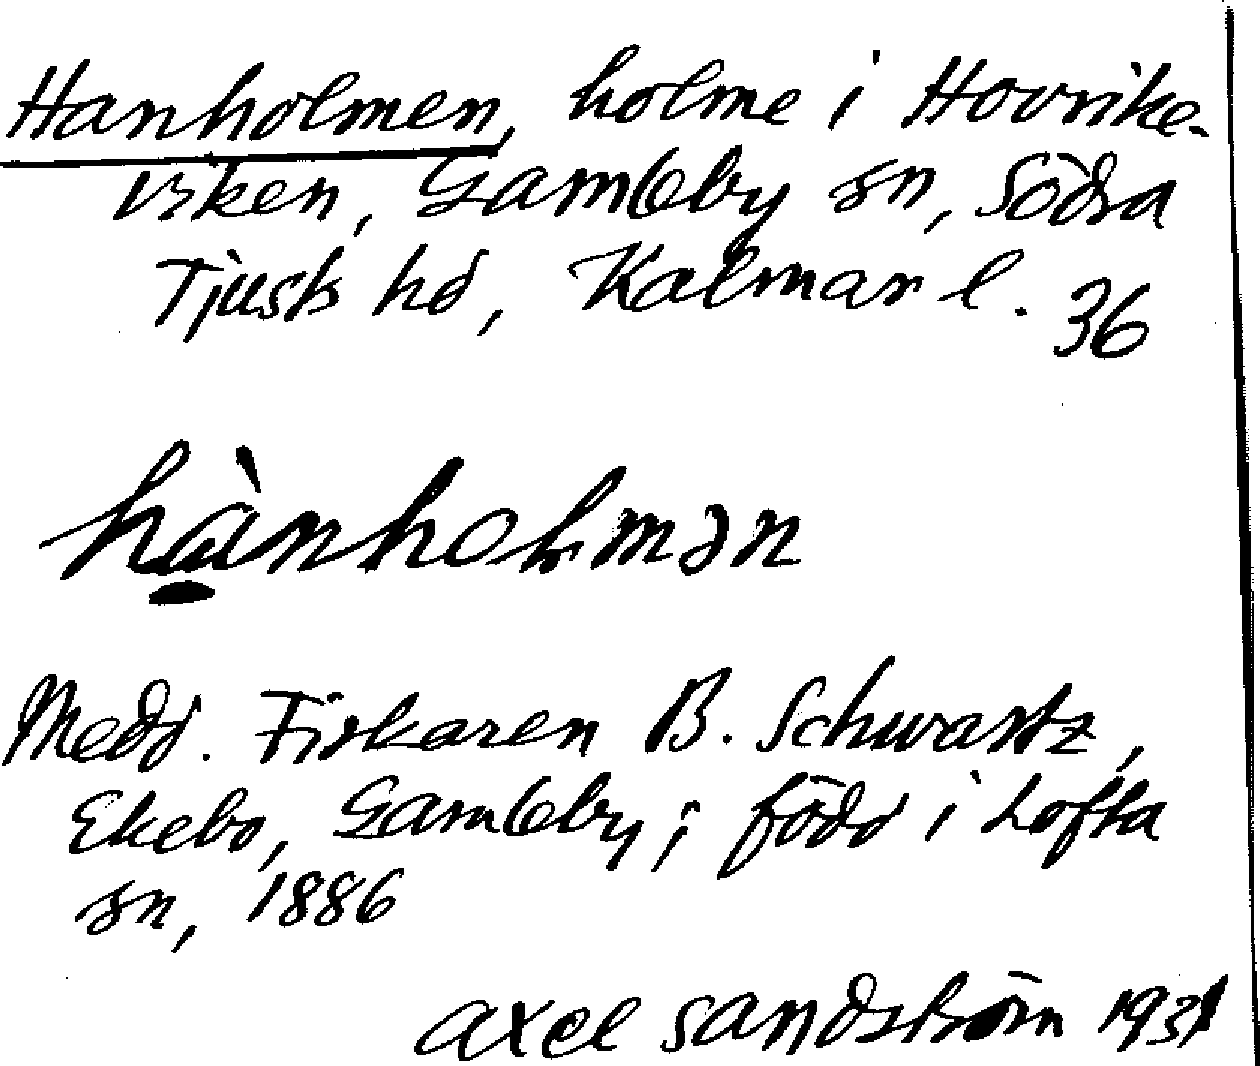 Hanholmen, holme i Hovrike-
viken, Gamleby sn, Södra
Tjusts hd, Kalmar l. 36
hànholmən
Medd. Fiskaren B. Schwartz,
Ekebo, Gamleby; född i Lofta
sn, 1886
Axel Sandström 1931